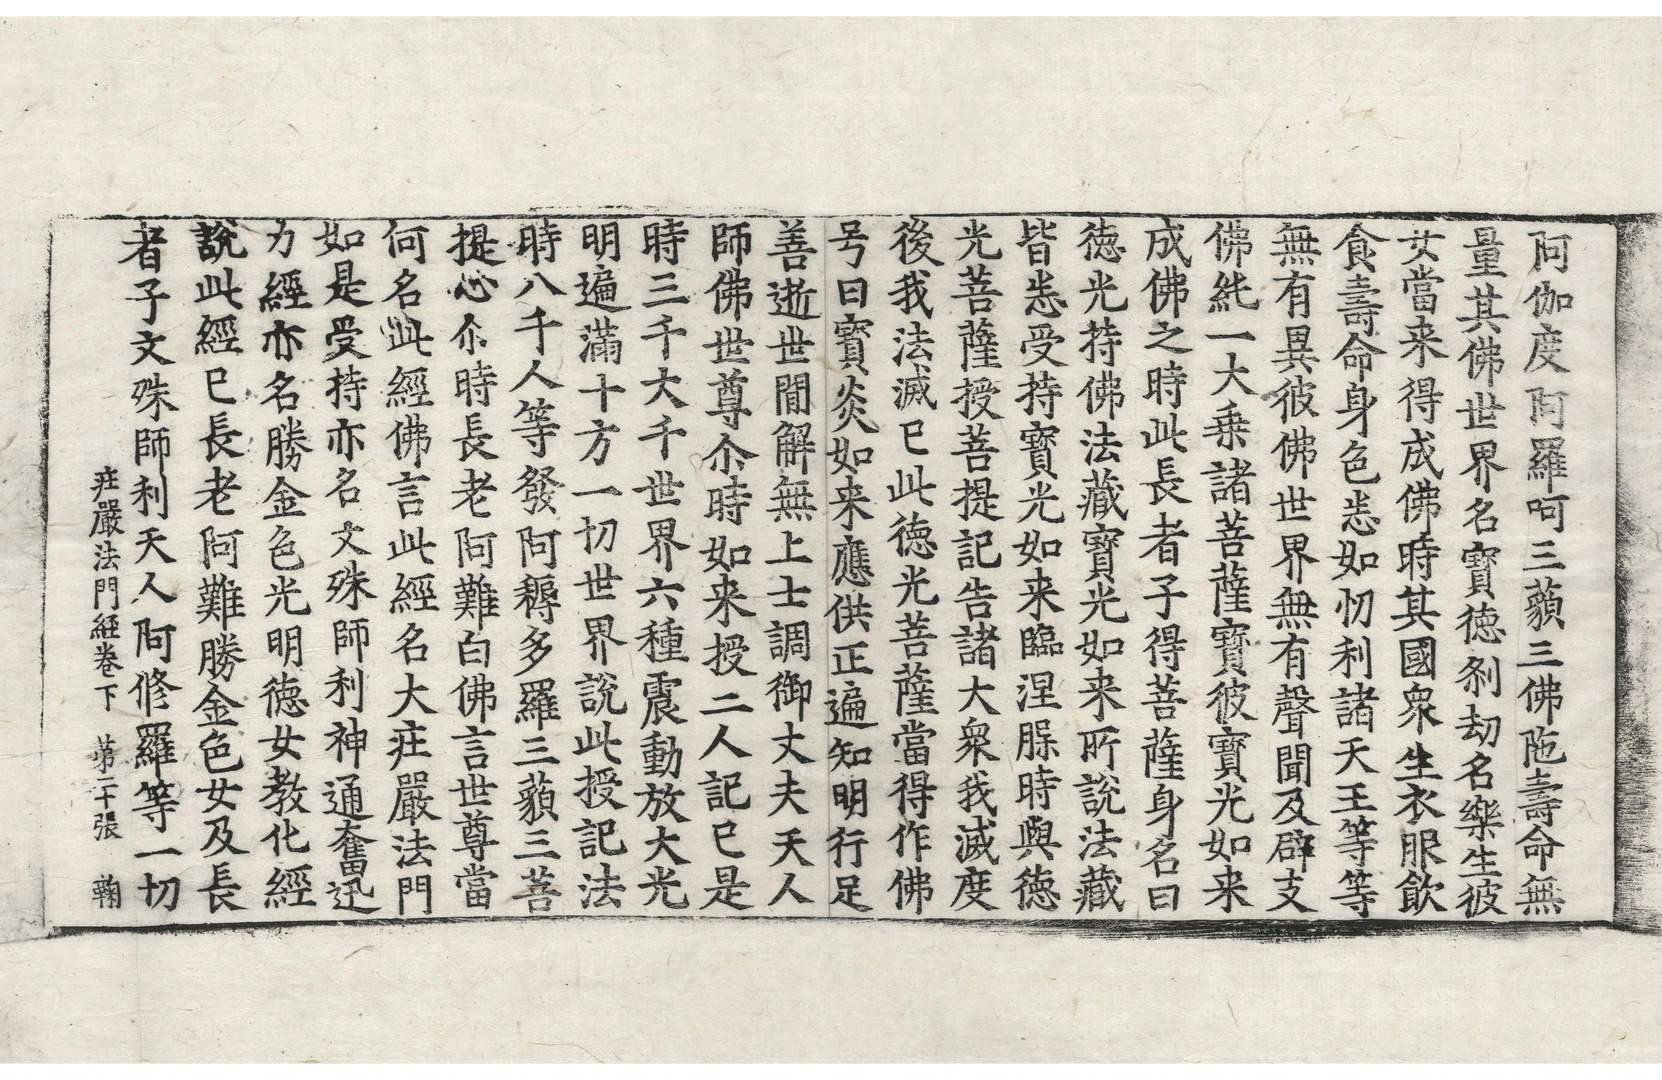 阿伽度阿羅呵三藐三佛陁壽命無
量其佛世界名寶德刹劫名樂生彼
女當来得成佛時其國衆生衣服飮
食壽命身色悉如忉利諸天王等等
無有異彼佛世界無有聲聞及辟支
佛純一大乗諸菩薩寶彼寶光如来
成佛之時此長者子得菩薩身名曰
德光持佛法藏寶光如来所說法藏
皆悉受持寶光如来臨涅脲時與德
光菩薩授菩提記告諸大衆我滅度
後我法滅已此德光菩薩當得作佛
号曰寶炎如来應供正遍知明行足
善逝世間解無上士調御丈夫天人
師佛世尊尒時如来授二人記已是
時三千大千世界六種震動放大光
明遍滿十方一切世界說此授記法
時八千人等發阿耨多羅三藐三菩
提心尒時長老阿難白佛言世尊當
何名此經佛言此經名大庄嚴法門
如是受持亦名文殊師利神通奮迅
力經亦名勝金色光明德女教化經
說此經已長老阿難勝金色女及長
者子文殊師利天人阿修羅等一切
庄嚴法門經卷下 苐二十張 鞠